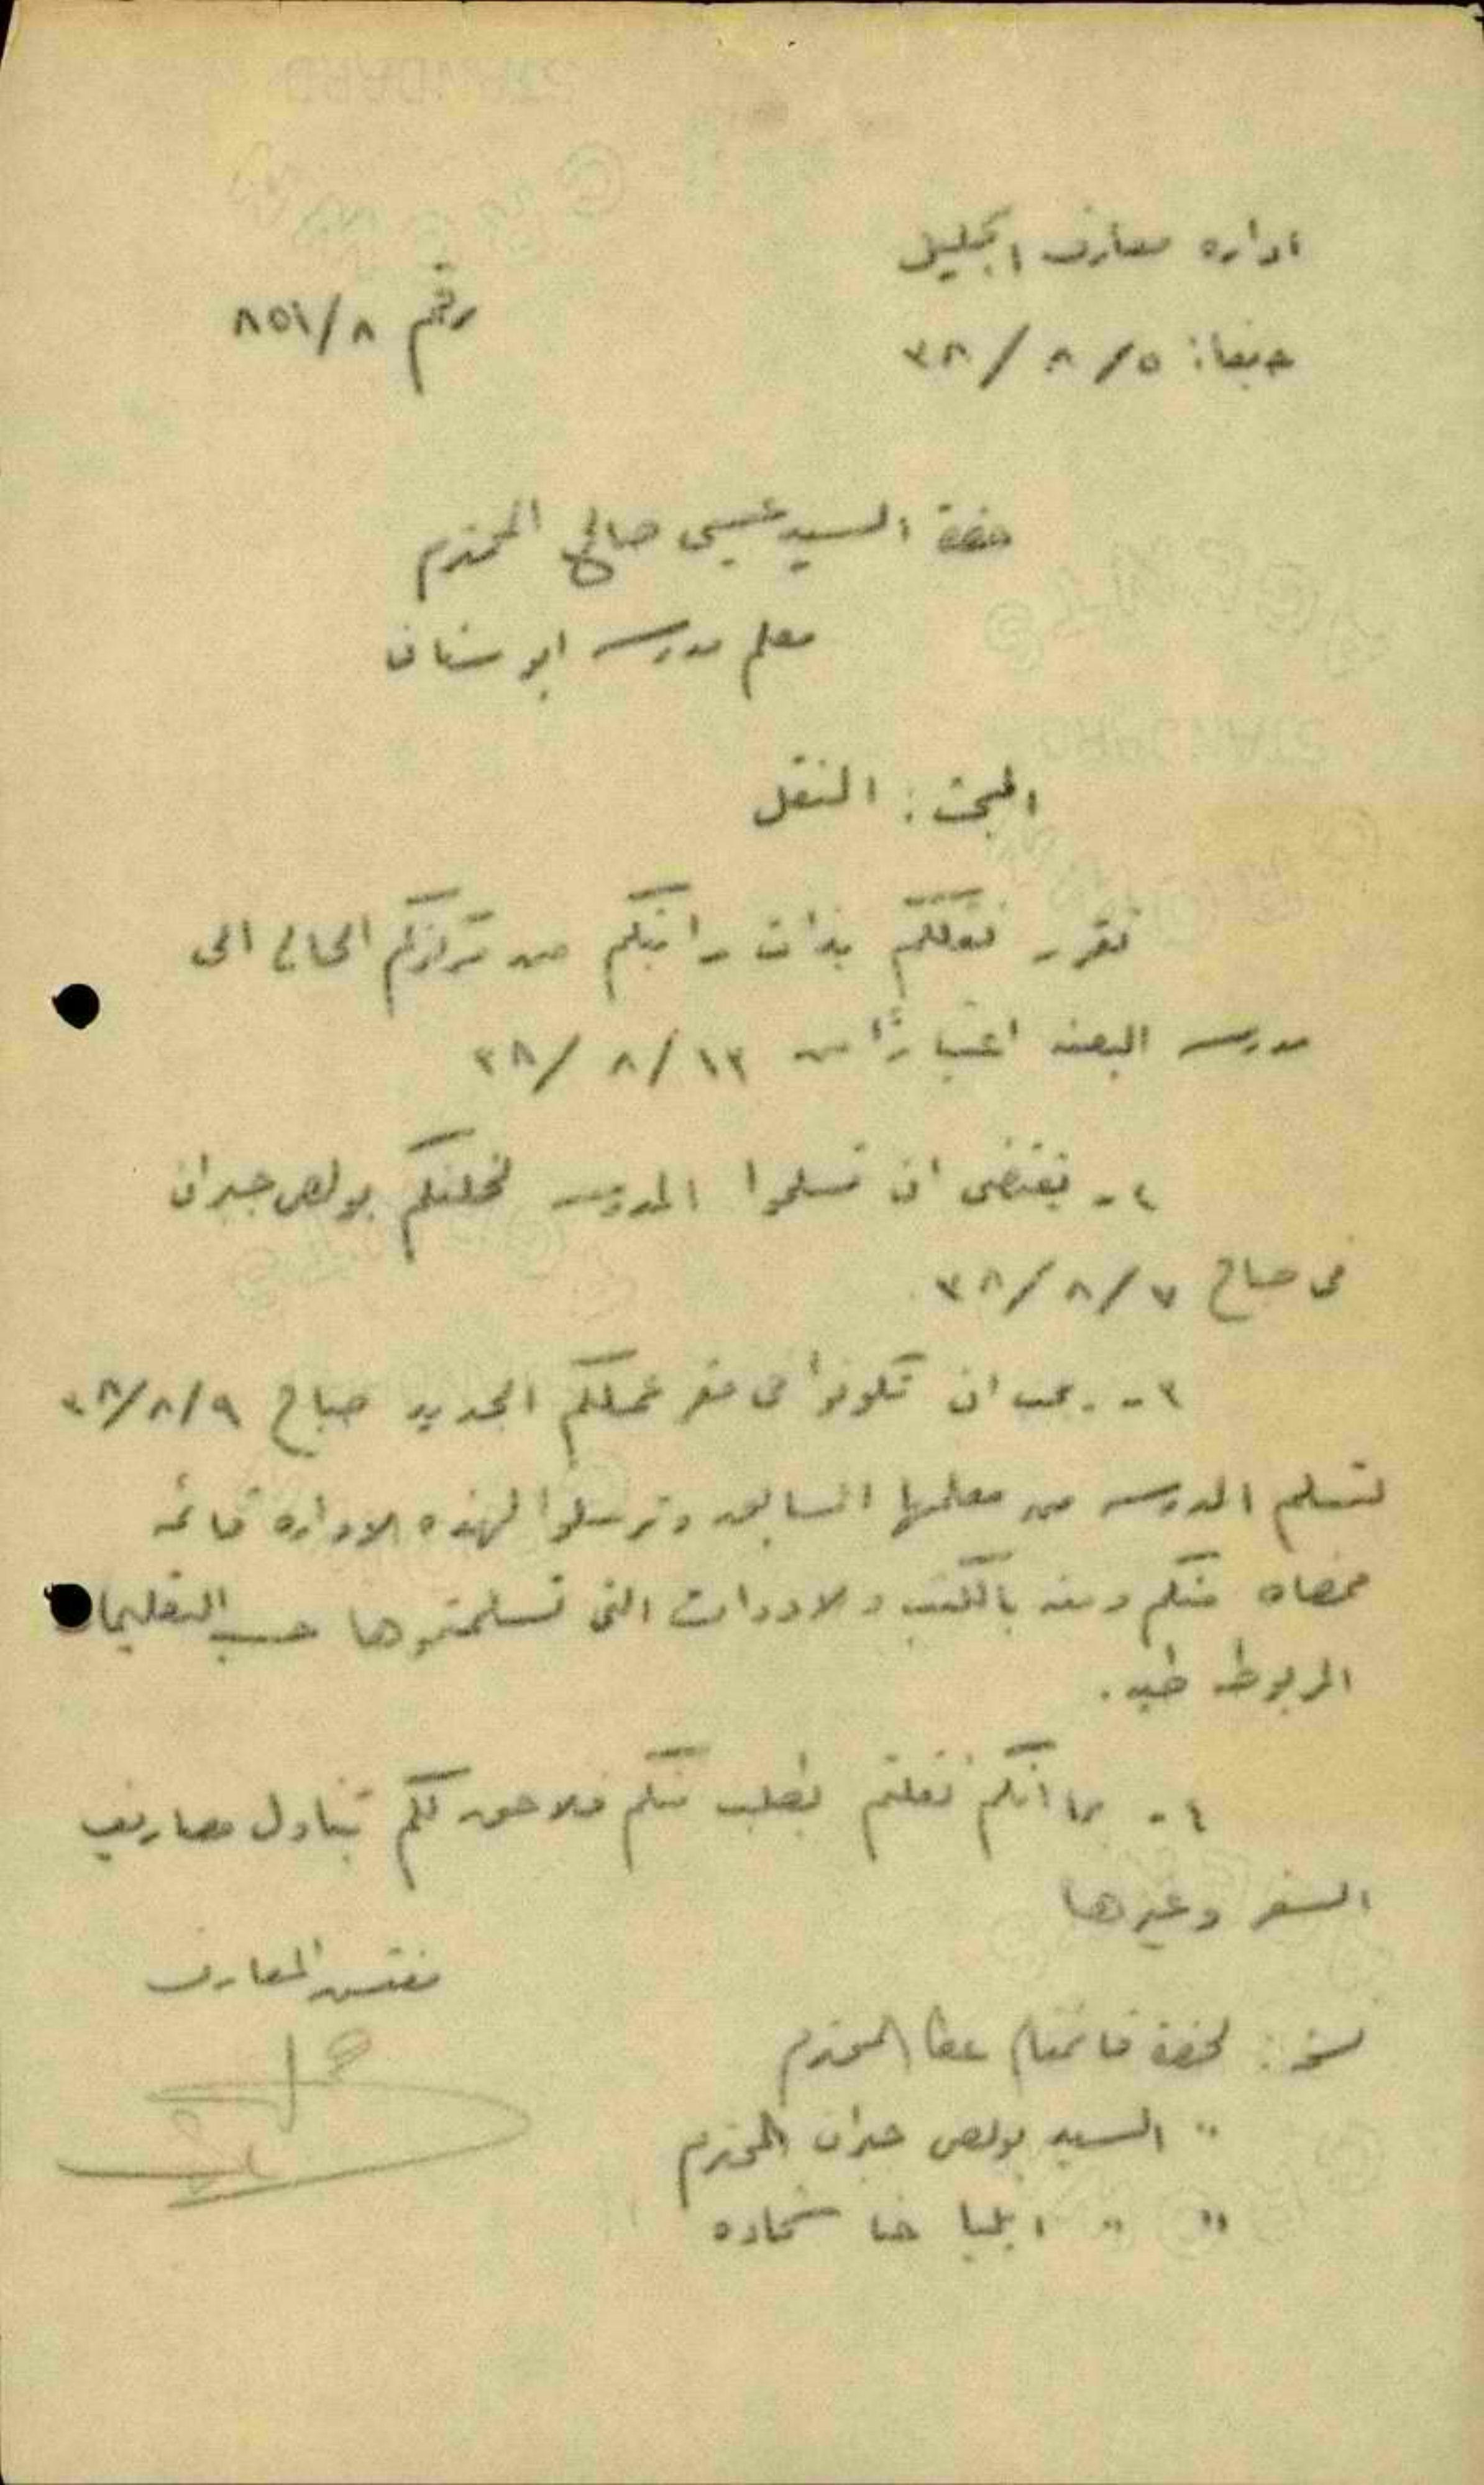 اداره معارف الجليل
رقم ٨/٨٥١
حيفا: ٥/ ٨ /٣٨
حضرة السيد عيسى صالح المحترم
معلم مدرسه ابو سنان
المبحث: النقل
تقرر نقلكم بذات راتبكم من مركزكم الحالي الى
مدرسه البعنه اعتبارًا من ١٣/ ٨ /٣٨
٢- يقتضى ان تسلموا المدرسه لخلفكم بولص جبران
فى صباح ٧/ ٨ /٣٨
٣- يجب ان تكونوا فى مقر عملكم الجديد صباح ٩/ ٨ /٣٨
لتسلم المدرسه من معلمها السابق وترسلوا لهذه الاداره قائمه
ممضاه منكم ومنه بالكتب والادوات التى تسلمتموها حسب التعليمات
المربوطه طيه.
٤- بما انكم نقلتم بطلب منكم فلا حق لكم بتناول مصاريف
السفر وغيرها
مفتش المعارف
نسخه: لحضرة قائمقام عكا المحترم
" السيد بولص جبران المحترم
" " ايليا حنا شحاده